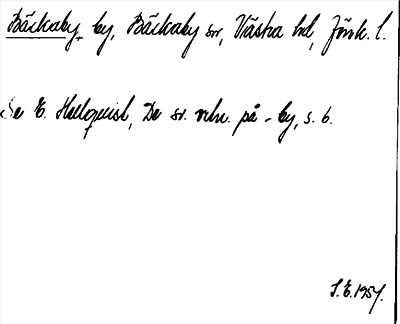 Bäckaby, by, Bäckaby sn, Västra hd, Jönk. l.
Se E. Hellquist, De sv. ortn. på -by, s. 6.
S.E. 1957.